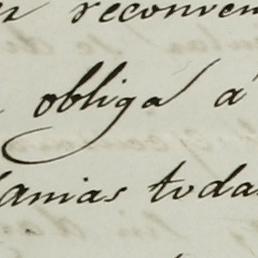 reconven
obliga á
anias toda